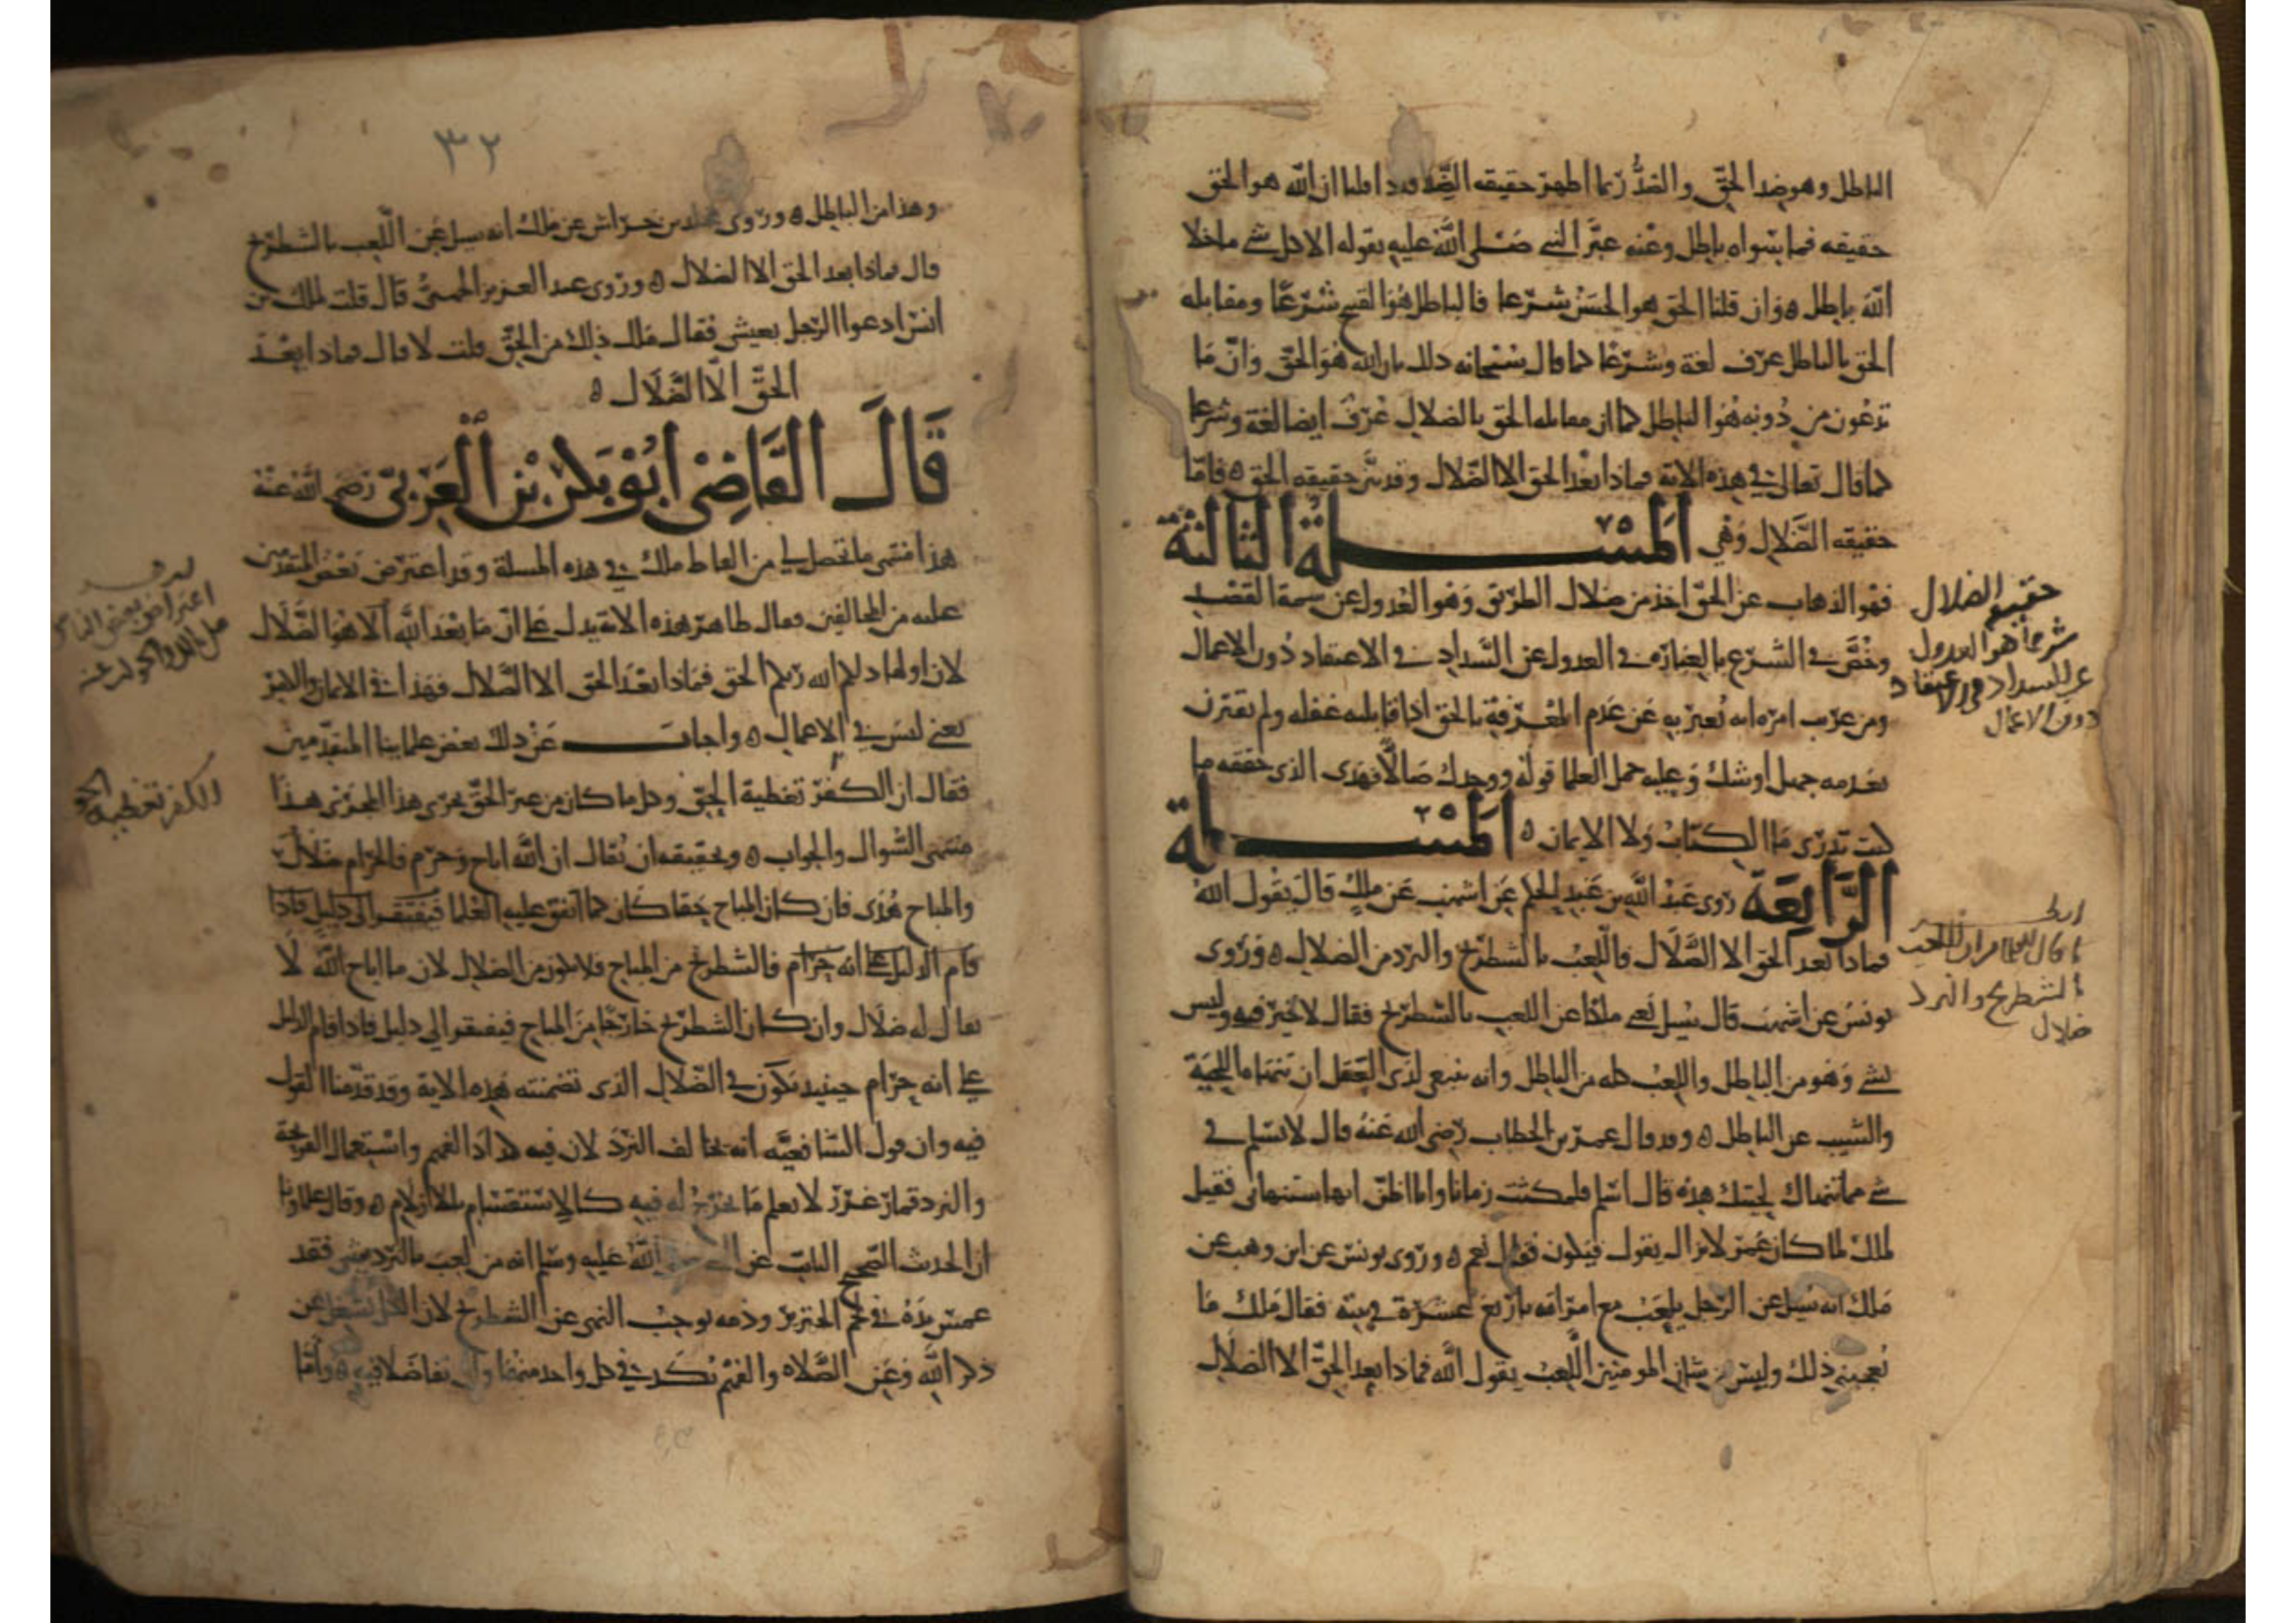 الباطل وهو ضد الحق والضد ربما اظهر حقيقه الضد فاذا قلنا ان الله هو الحق
حقيقه فما سواه باطل وعنه عبر النبي صلى الله عليه بقوله الا كل شي ما خلا
الله باطل ه وان قلنا الحق هو الحسن شرعا فالباطل هو القبيح شرعا ومقابله
الحق بالباطل عرف لغة وشرعا كما قال سبحانه ذلك بان الله هو الحق وان ما
تدعون من دونه هو الباطل كما ان مقابله الحق بالضلال عرف ايضا لغة وشرعا
كما قال تعالى في هذه الاية فماذا بعد الحق الا الضلال وقد بين حقيقه الحق ه فاما
حقيقه الضلال وهي المسلة الثالثة
فهو الذهاب عن الحق اخذ من ضلال الطريق وهو العدول عن سمة القصد
وخص في الشرع بالعبارة في العدول عن السداد في الاعتقاد دون الاعمال
ومن غريب امره انه يعبر به عن عدم المعرفة بالحق اذا قابله غفله ولم يقترن
بعدمه جهل او شك وعليه حمل العلما قوله ووجدك ضالا فهدى الذي حققه ما
كنت تدري ما الكتاب ولا الايمان ه المسلة
الرابعة روى عبد الله بن عبد الحكم عن اشهب عن ملك قال يقول الله
فماذا بعد الحق الا الضلال فاللعب بالشطرنج والنرد من الضلال ه وروى
يونس عن اشهب قال سيل يعني مالكا عن اللعب بالشطرنج فقال لا خير فيه وليس
بشي وهو من الباطل واللعب كله من الباطل وانه ينبغي لذي العقل ان تنهاه اللحية
والشيب عن الباطل ه وقد قال عمر بن الخطاب رضي الله عنه قال لاسلم في
شي ما تنهاك لحيتك هذه قال اسلم فلمكثت زمانا وانا اظن انها ستنهاني فقيل
لملك لما كان عمر لا يزال يقول فيكون فقال نعم ه وروى يونس عن ابن وهب عن
ملك انه سيل عن الرجل يلعب مع امراته باربع عشرة في بيته فقال ملك ما
يعجبني ذلك وليس من شان المومنين اللعب يقول الله فماذا بعد الحق الا الضلال
حقيقه الضلال
شرعا هو العدول
عن السداد في الاعتقاد
دون الاعمال
الشطرنج والنرد
ضلال
٣٢
وهذا من الباطل ه وروى مخلد بن خراش عن ملك انه سيل عن اللعب بالشطرنج
قال فماذا بعد الحق الا الضلال ه وروى عبد العزيز الجهني قال قلت لملك بن
انس ادعوا الرجل يعبثني فقال ملك ذلك من الحق قلت لا قال فماذا بعد
الحق الا الضلال ه
قال القاضي ابو بكر بن العربي رضي الله عنه
هذا منتهى ما تحصل لي من الفاظ ملك في هذه المسلة وقد اعترض بعض المتقدمين
عليه من المخالفين وقال ظاهر هذه الاية يدل على ان ما بعد الله الا هو الضلال
لان اولها ذلكم الله ربكم الحق فماذا بعد الحق الا الضلال فهذا في الايمان والكفر
يعني ليس في الاعمال ه واجاب عن ذلك بعض علماينا المتقدمين
فقال ان الكفر تغطية الحق وكل ما كان من غير الحق يجري هذا المجرى هذا
منتهى السوال والجواب ه وتحقيقه ان يقال ان الله اباح وحرم فالحرام ضلال
والمباح هدى فان كان المباح حقا كان كما اتفق عليه العلما فيفتقر الى دليل فاذا
قام الدليل على انه حرام فالشطرنج من المباح فلا يكون من الضلال لان ما اباح الله لا
يقال له ضلال وان كان الشطرنج خارجا من المباح فيفتقر الى دليل فاذا قام الدليل
على انه حرام حينيذ يكون في الضلال الذي تضمنته هذه الاية وقد قدمنا القول
فيه وان قول الشافعيه انه يخالف النرد لان فيه اكداد الفهم واستعمال القريحة
والنرد قمار غرر لا يعلم ما يخرج له فيه كالاستقسام بالازلام ه وقال علماونا
ان الحديث الصحيح الثابت عن النبي صلى الله عليه وسلم انه من لعب بالنردشير فقد
غمس يده في لحم الخنزير وذمه يوجب النهي عن الشطرنج لان الكل يشغل عن
ذكر الله وعن الصلاة والفهم يكد في كل واحد منهما وان تفاضلا فيه ه واما
الكفر تغطية الحق